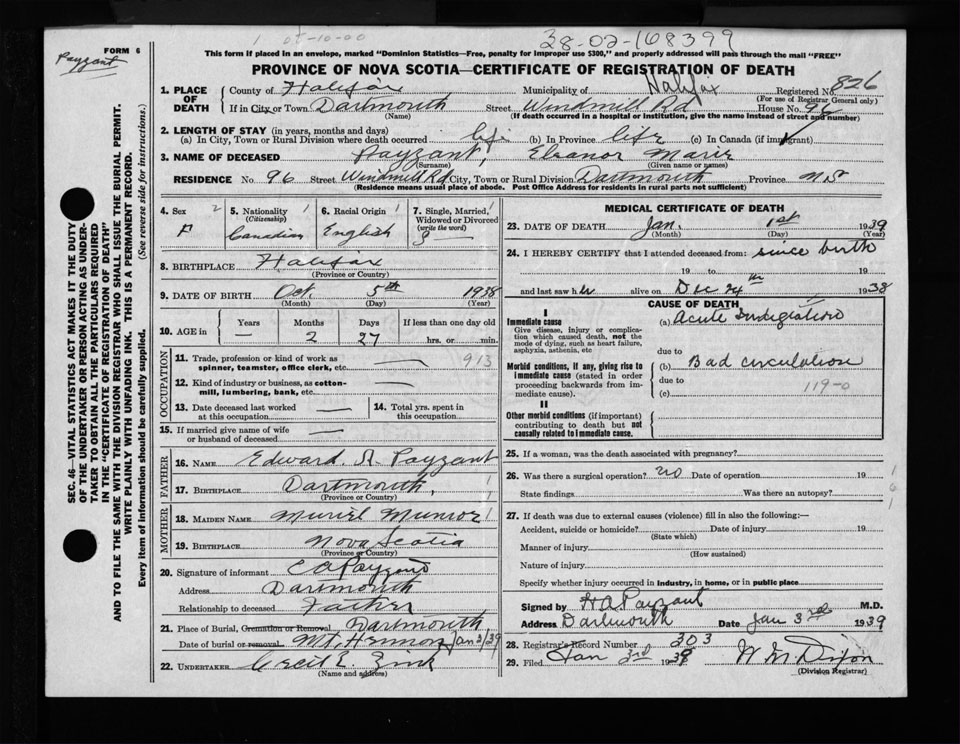 38-02-168399
1 05-10-00
FORM 6
Payzant
This form if placed in an envelope, marked "Dominion Statistics—Free, penalty for improper use $300," and properly addressed will pass through the mail "FREE"
PROVINCE OF NOVA SCOTIA—CERTIFICATE OF REGISTRATION OF DEATH
SEC. 46—VITAL STATISTICS ACT MAKES IT THE DUTY
OF THE UNDERTAKER OR PERSON ACTING AS UNDER-
TAKER TO OBTAIN ALL THE PARTICULARS REQUIRED
IN THE "CERTIFICATE OF REGISTRATION OF DEATH"
AND TO FILE THE SAME WITH THE DIVISION REGISTRAR WHO SHALL ISSUE THE BURIAL PERMIT.
WRITE PLAINLY WITH UNFADING INK. THIS IS A PERMANENT RECORD.
Every item of information should be carefully supplied. (See reverse side for instructions.)
1. PLACE OF DEATH
County of Halifax Municipality of Halifax Registered No. 826
(For use of Registrar General only)
If in City or Town Dartmouth Street Windmill Rd House No. 96
(Name) (If death occurred in a hospital or institution, give the name instead of street and number)
2. LENGTH OF STAY (in years, months and days)
(a) In City, Town or Rural Division where death occurred life (b) In Province life (c) In Canada (if immigrant)
3. NAME OF DECEASED Payzant, Eleanor Marie
(Surname) (Given name or names)
RESIDENCE No. 96 Street Windmill Rd City, Town or Rural Division Dartmouth Province N S
(Residence means usual place of abode. Post Office Address for residents in rural parts not sufficient)
4. Sex 2 5. Nationality 1 6. Racial Origin 1 7. Single, Married, 1
(Citizenship) Widowed or Divorced
(write the word)
F Canadian English S
8. BIRTHPLACE Halifax
(Province or Country)
9. DATE OF BIRTH Oct. 5th 1938
(Month) (Day) (Year)
10. AGE in Years Months Days If less than one day old
— 2 27 hrs. or min.
OCCUPATION
11. Trade, profession or kind of work as
spinner, teamster, office clerk, etc. — 913
12. Kind of industry or business, as cotton-
mill, lumbering, bank, etc. —
13. Date deceased last worked
at this occupation —
14. Total yrs. spent in
this occupation —
15. If married give name of wife
or husband of deceased —
FATHER
16. NAME Edward A Payzant
17. BIRTHPLACE Dartmouth, 1
(Province or Country)
MOTHER
18. MAIDEN NAME Muriel Munroe 1
19. BIRTHPLACE Nova Scotia
(Province or Country)
20. Signature of informant E A Payzant
Address Dartmouth
Relationship to deceased Father
21. Place of Burial, Cremation or Removal Dartmouth,
Date of burial or removal Mt. Hermon Jan 3/39
22. UNDERTAKER Cecil E. Zink
(Name and address)
MEDICAL CERTIFICATE OF DEATH
23. DATE OF DEATH Jan. 1st 1939
(Month) (Day) (Year)
24. I HEREBY CERTIFY that I attended deceased from: since birth
19 to 19
and last saw her alive on Dec 24th 1938
CAUSE OF DEATH
I
Immediate cause (a) Acute Indigestion
Give disease, injury or complica-
tion which caused death, not the
mode of dying, such as heart failure,
asphyxia, asthenia, etc
due to
Morbid conditions, if any, giving rise to (b) Bad circulation
immediate cause (stated in order
proceeding backwards from im-
mediate cause).
due to 119-0
(c)
II
Other morbid conditions (if important)
contributing to death but not
causally related to immediate cause.
25. If a woman, was the death associated with pregnancy?
26. Was there a surgical operation? no Date of operation 19
State findings Was there an autopsy?
27. If death was due to external causes (violence) fill in also the following:—
Accident, suicide or homicide? Date of injury 19
(State which)
Manner of injury
(How sustained)
Nature of injury
Specify whether injury occurred in industry, in home, or in public place
Signed by H A Payzant M.D.
Address Dartmouth Date Jan 3rd 1939
28. Registrar's Record Number 303
29. Filed Jan 3rd 1939 W M Dixon
(Division Registrar)